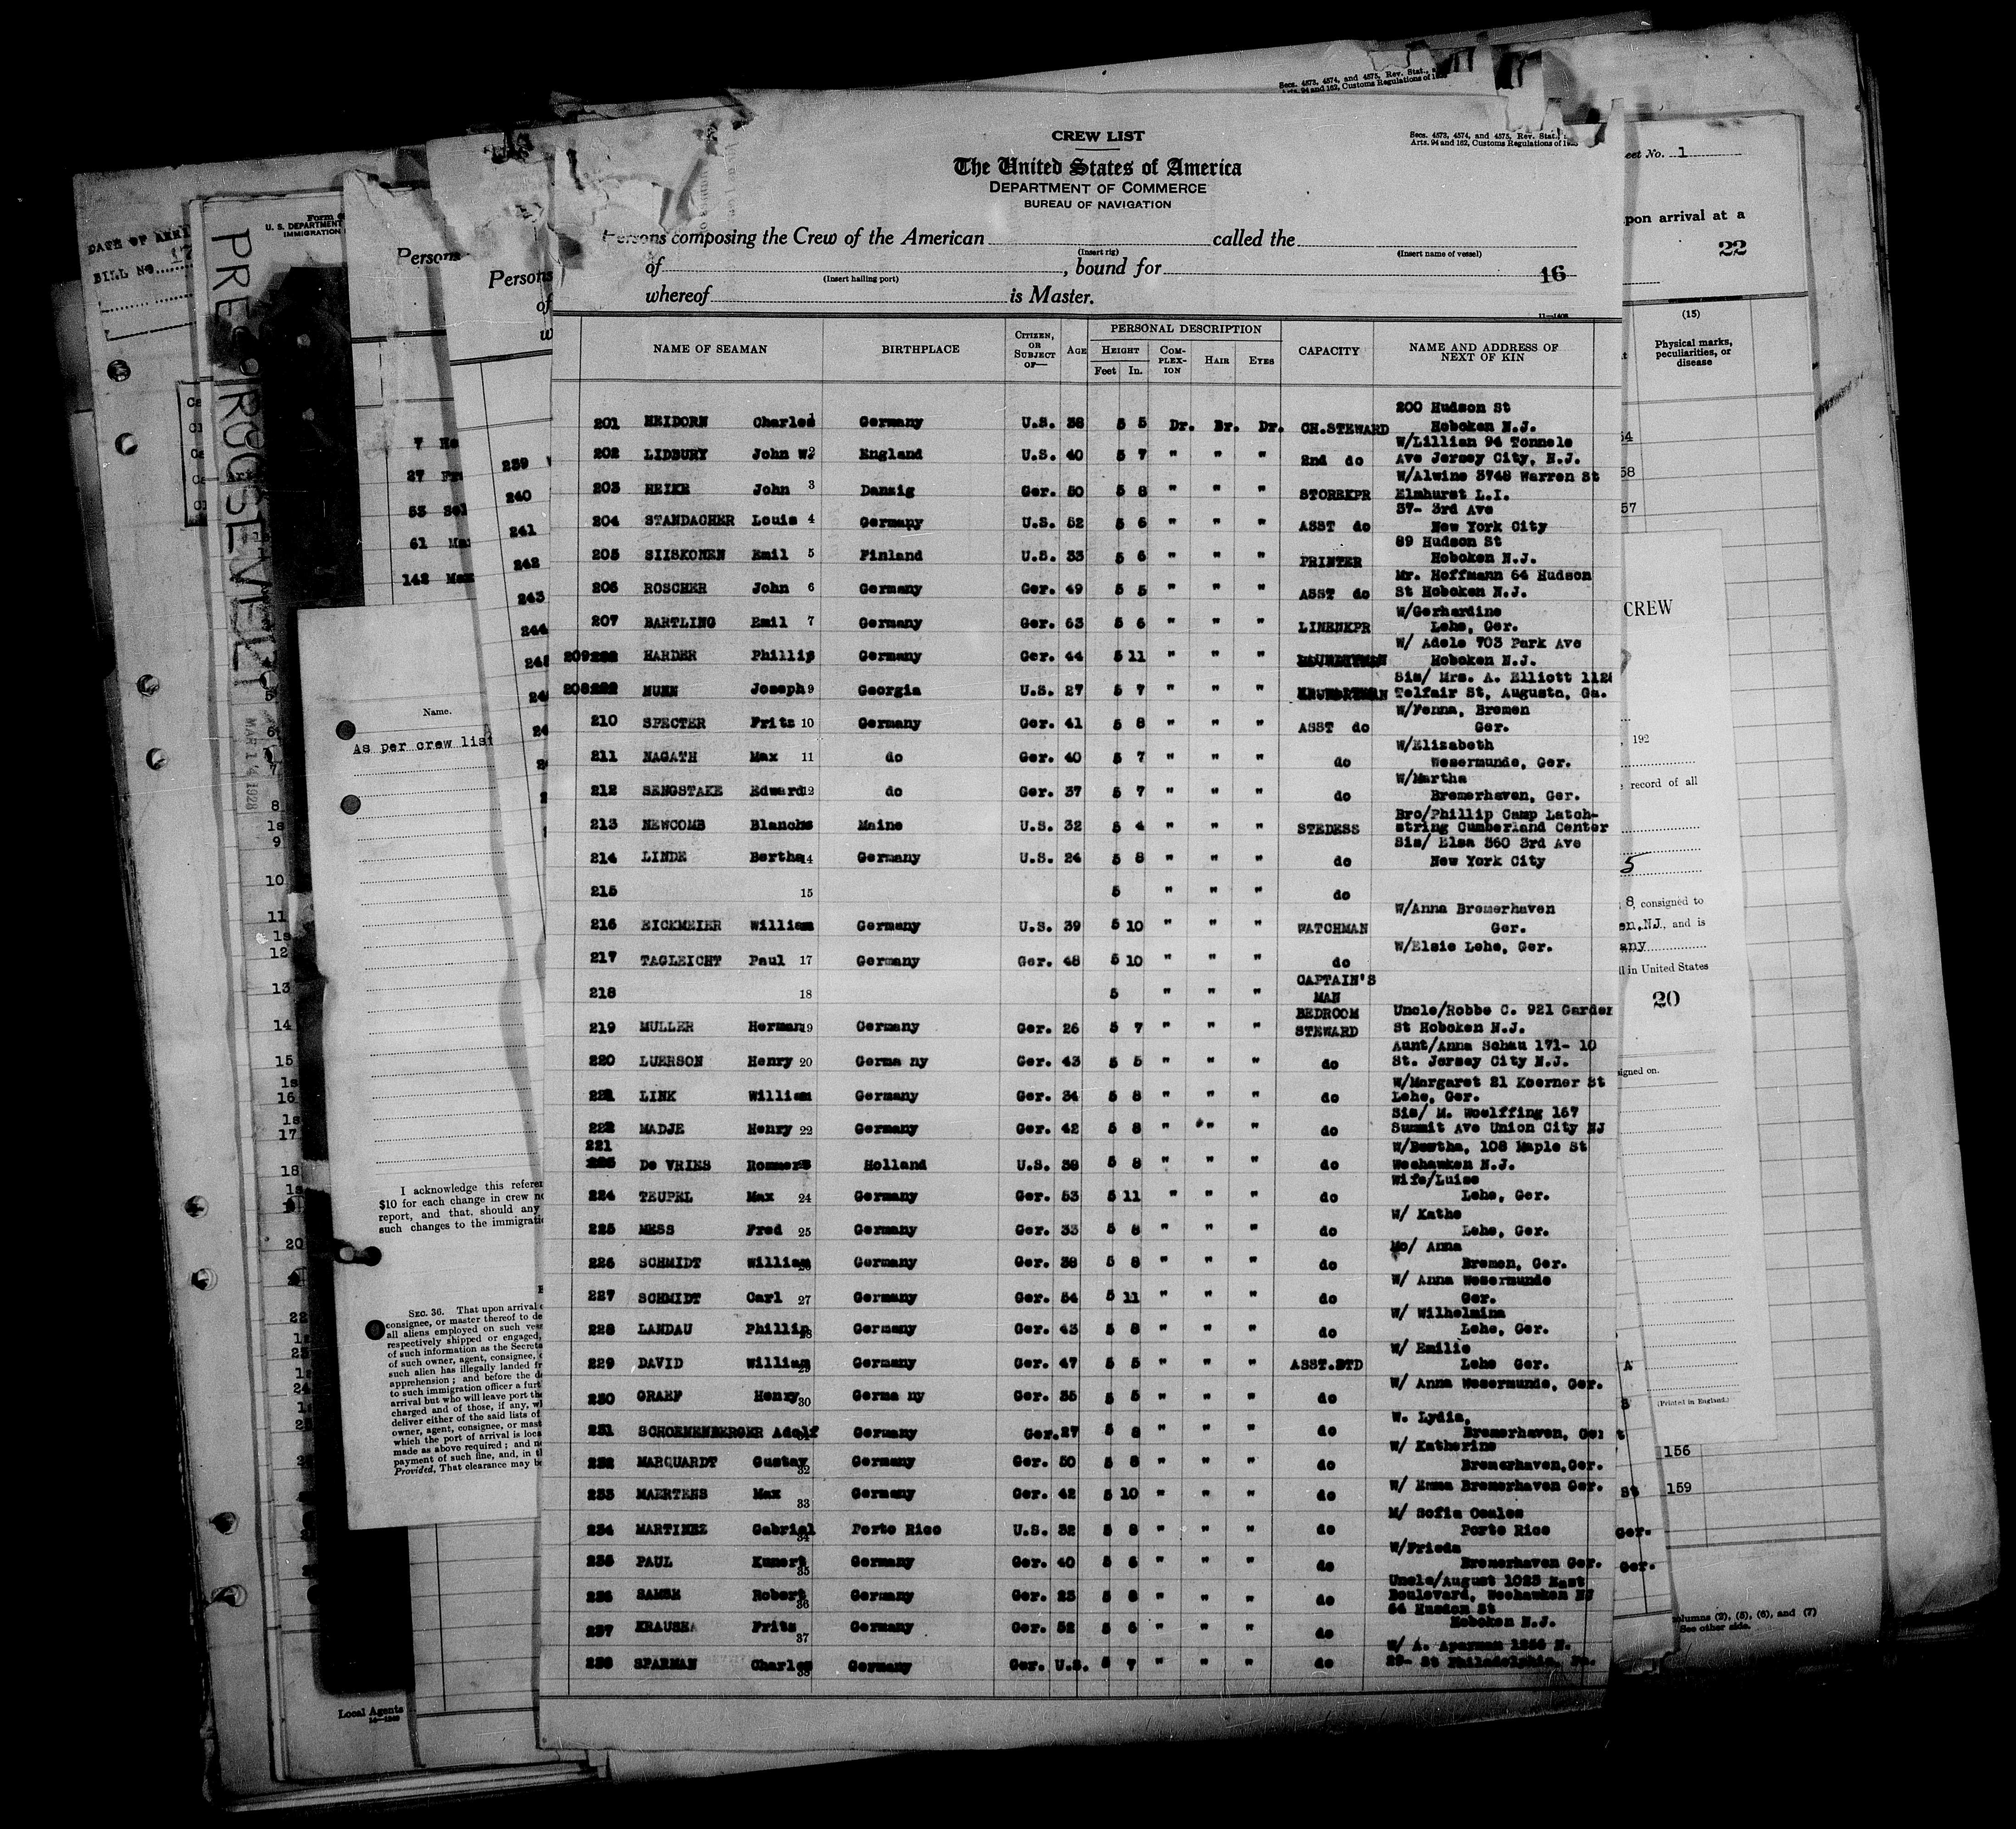 CREW LIST
Secs. 4573, 4574, and 4575, Rev. Stat.,
Arts. 94 and 162, Customs Regulations of
The United States of America
DEPARTMENT OF COMMERCE
BUREAU OF NAVIGATION
Persons composing the Crew of the American called the
(Insert rig) (Insert name of vessel)
of , bound for 16
(Insert hailing port)
whereof is Master.
11-1408
NAME OF SEAMAN BIRTHPLACE CITIZEN, OR SUBJECT OF— AGE PERSONAL DESCRIPTION CAPACITY NAME AND ADDRESS OF NEXT OF KIN
HEIGHT COM-PLEX-ION HAIR EYES
Feet In.
200 Hudson St
201 HEIDORN Charles 1 Germany U.S. 38 5 5 Dr. Br. Dr. CH.STEWARD Hoboken N.J.
W/Lillian 94 Tonnele
202 LIDBURY John W. 2 England U.S. 40 5 7 " " " 2nd do Ave Jersey City, N.J.
W/Alwine 3748 Warren St
203 HEIKE John 3 Danzig Ger. 50 5 8 " " " STOREKPR Elmhurst L.I.
37- 3rd Ave
204 STANDACHER Louis 4 Germany U.S. 52 5 6 " " " ASST do New York City
89 Hudson St
205 SIISKONEN Emil 5 Finland U.S. 33 5 6 " " " PRINTER Hoboken N.J.
Mr. Hoffmann 64 Hudson
206 ROSCHER John 6 Germany Ger. 49 5 5 " " " ASST do St Hoboken N.J.
W/Gerhardine
207 BARTLING Emil 7 Germany Ger. 63 5 6 " " " LINENKPR Lehe, Ger.
W/ Adele 703 Park Ave
209 HARDER Phillip Germany Ger. 44 5 11 " " " Hoboken N.J.
Sis/ Mrs. A. Elliott 112
208 NUNN Joseph 9 Georgia U.S. 27 5 7 " " " Telfair St, Augusta, Ga.
W/Fenna, Bremen
210 SPECTER Fritz 10 Germany Ger. 41 5 8 " " " ASST do Ger.
W/Elizabeth
211 NAGATH Max 11 do Ger. 40 5 7 " " " do Wesermunde, Ger.
W/Martha
212 SENGSTAKE Edward 12 do Ger. 37 5 7 " " " do Bremerhaven, Ger.
Bro/Phillip Camp Latch-
213 NEWCOMB Blanche Maine U.S. 32 5 4 " " " STEDESS string Cumberland Center
Sis/ Elsa 360 3rd Ave
214 LINDE Bertha 14 Germany U.S. 24 5 8 " " " do New York City
215 15 5 " " " do
W/Anna Bremerhaven
216 EICKMEIER William Germany U.S. 39 5 10 " " " WATCHMAN Ger.
W/Elsie Lehe, Ger.
217 TAGLEICHT Paul 17 Germany Ger. 48 5 10 " " " do
CAPTAIN'S
218 18 5 " " " MAN
BEDROOM Uncle/Robbe C. 921 Garden
219 MULLER Herman 19 Germany Ger. 26 5 7 " " " STEWARD St Hoboken N.J.
Aunt/Anna Schau 171- 10
220 LUERSON Henry 20 Germa ny Ger. 43 5 5 " " " do St. Jersey City N.J.
W/Margaret 21 Koerner St
221 LINK William Germany Ger. 34 5 8 " " " do Lehe, Ger.
Sis/ M. Woelffing 167
222 MADJE Henry 22 Germany Ger. 42 5 8 " " " do Summit Ave Union City NJ
221 W/Bertha, 108 Maple St
223 De VRIES Rommers Holland U.S. 38 5 8 " " " do Weehawken N.J.
Wife/Luise
224 TEUPEL Max 24 Germany Ger. 53 5 11 " " " do Lehe, Ger.
W/ Kathe
225 MESS Fred 25 Germany Ger. 33 5 8 " " " do Lehe, Ger.
Mo/ Anna
226 SCHMIDT William 26 Germany Ger. 38 5 8 " " " do Bremen, Ger.
W/ Anna Wesermunde
227 SCHMIDT Carl 27 Germany Ger. 54 5 11 " " " do Ger.
W/ Wilhelmina
228 LANDAU Phillip 28 Germany Ger. 43 5 8 " " " do Lehe, Ger.
W/ Emilie
229 DAVID William 29 Germany Ger. 47 5 5 " " " ASST.STD Lehe Ger.
W/ Anna Wesermunde, Ger.
230 GRAEF Henry 30 Germa ny Ger. 35 5 5 " " " do
W. Lydia,
231 SCHOENENBERGER Adolf Germany Ger. 27 5 8 " " " do Bremerhaven, Ger
W/ Katherine
232 MARQUARDT Gustav 32 Germany Ger. 50 5 8 " " " do Bremerhaven, Ger.
W/ Emma Bremerhaven Ger.
233 MAERTENS Max 33 Germany Ger. 42 5 10 " " " do
M/ Sofia Coales
234 MARTINEZ Gabriel 34 Porto Rico U.S. 32 5 8 " " " do Porto Rico
W/Frieda
235 PAUL Kunert 35 Germany Ger. 40 5 6 " " " do Bremerhaven Ger.
Uncle/August 1023 East
236 Robert 36 Germany Ger. 23 5 8 " " " do Boulevard, Weehawken NJ
64 Hudson St
237 KRAUSE Fritz 37 Germany Ger. 52 5 6 " " " do Hoboken N.J.
W/ A. 1256 N.
238 SPARMAN Charles 38 Germany Ger. U.S. 5 7 " " " do 29- St Philadelphia, Pa.
Secs. 4573, 4574, and 4575, Rev. Stat.,
Arts. 94 and 162, Customs Regulations of
DATE OF
BILL No. 17
Form
U. S. DEPARTMENT
IMMIGRATION
PRES ROOSEVELT
MAR 14 1928
Persons
Persons
of
7
27
53
61
142
239
240
241
242
243
244
Name.
As per crew list
I acknowledge this
$10 for each change in crew
report, and that, should any
such changes to the
SEC. 36. That upon arrival
consignee, or master thereof to
all aliens employed on such
respectively shipped or engaged,
of such information as the
of such owner, agent, consignee,
such alien has illegally landed
apprehension; and before the
to such immigration officer a
arrival but who will leave port
charged and of those, if any,
deliver either of the said lists of
owner, agent, consignee, or
which the port of arrival is
made as above required; and
payment of such fine, and, in
Provided, That clearance may be
8
9
10
11
12
13
14
15
16
17
18
20
22
Local Agents
No. 1
upon arrival at a
22
(15)
Physical marks, peculiarities, or disease
54
58
57
CREW
, 192
record of all
5
8, consigned to
N.J., and is
in United States
20
signed on.
(Printed in England.)
156
159
St
Ger.
Ger.
columns (2), (5), (6), and (7)
See other side.